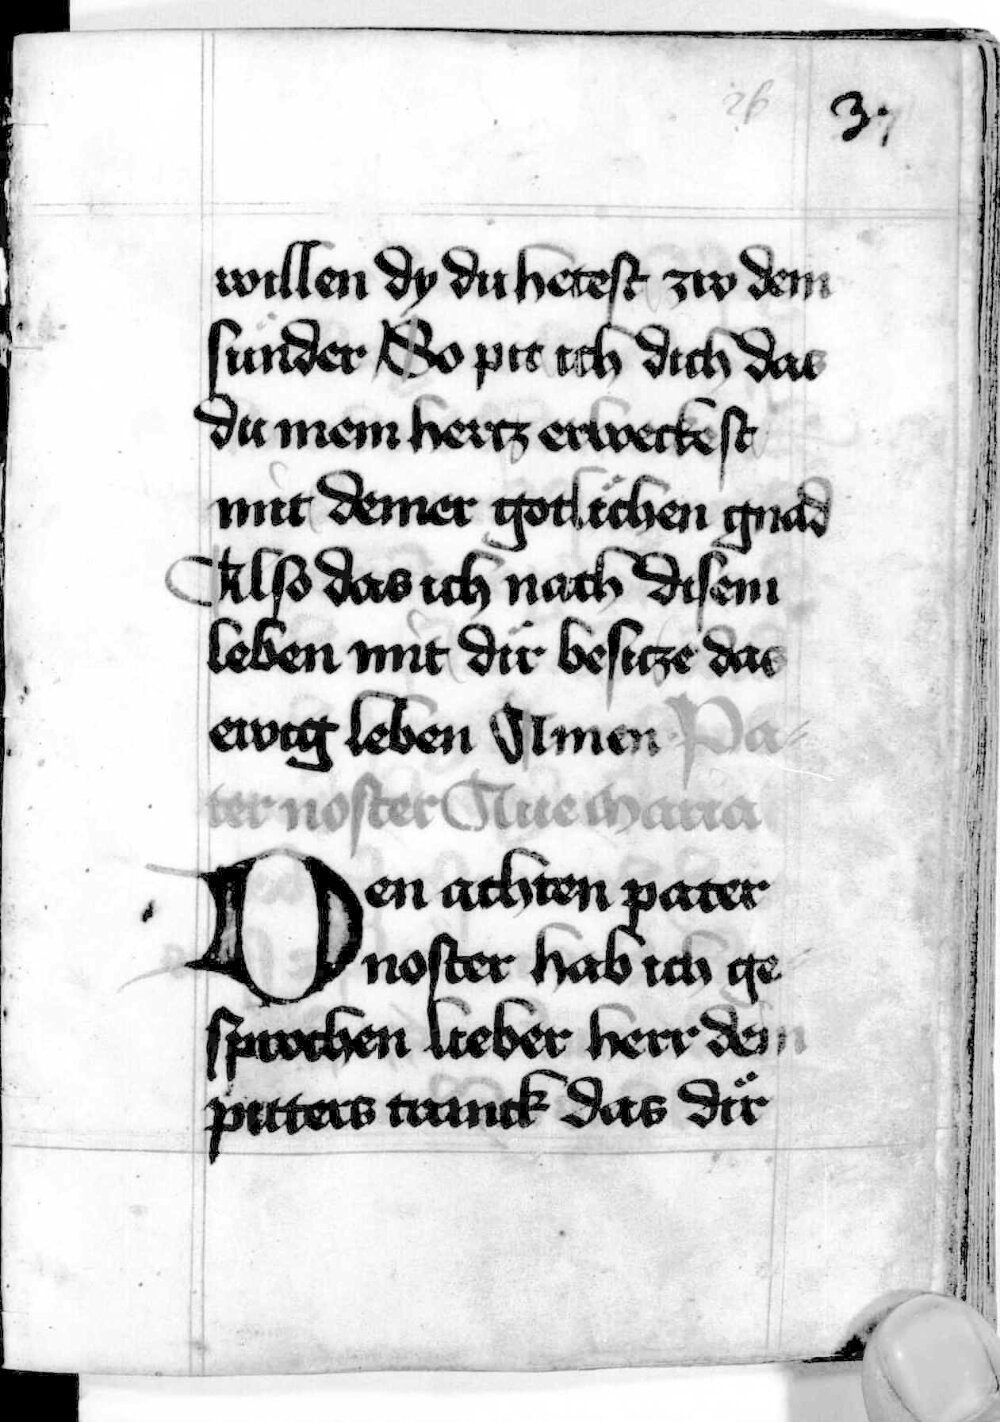 26 37
willen dy du hetest zw dem
sünder So pit ich dich das
du mein hertz erweckest
mit deiner gotlichen gnad
Also das ich nach disem
leben mit dir besitze das
ewig leben Amen Pa-
ter noster Aue maria
Den achten pater
noster hab ich ge
sprochen lieber herr dem
pitters tranck das dir